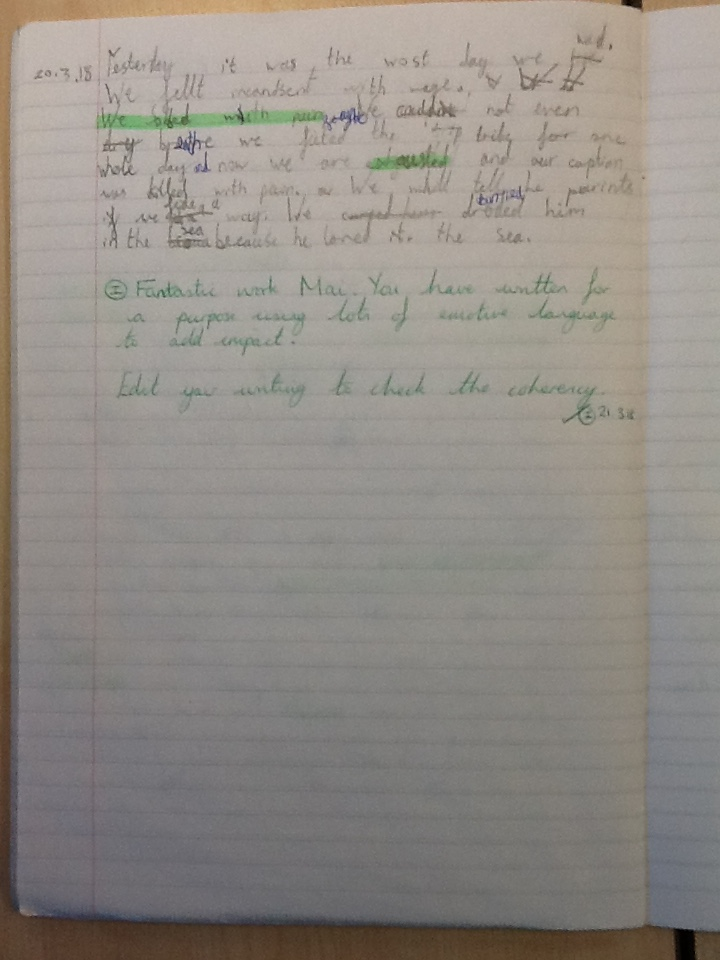 had.
20.3.18 Yesterday it was the worst day we
We fellt incandsent with rage.
We filed with pain We couldnt not even
breathe we faced the tribe for one
whole day and now we are exhausted and our caption
was killed with pain. We will tell he parints
if we find a way. We burried him
in the sea because he loved the sea.
Fantastic work Mai. You have written for
a purpose using lots of emotive language
to add impact.
Edit your writing to check the coherency.
21.3.18